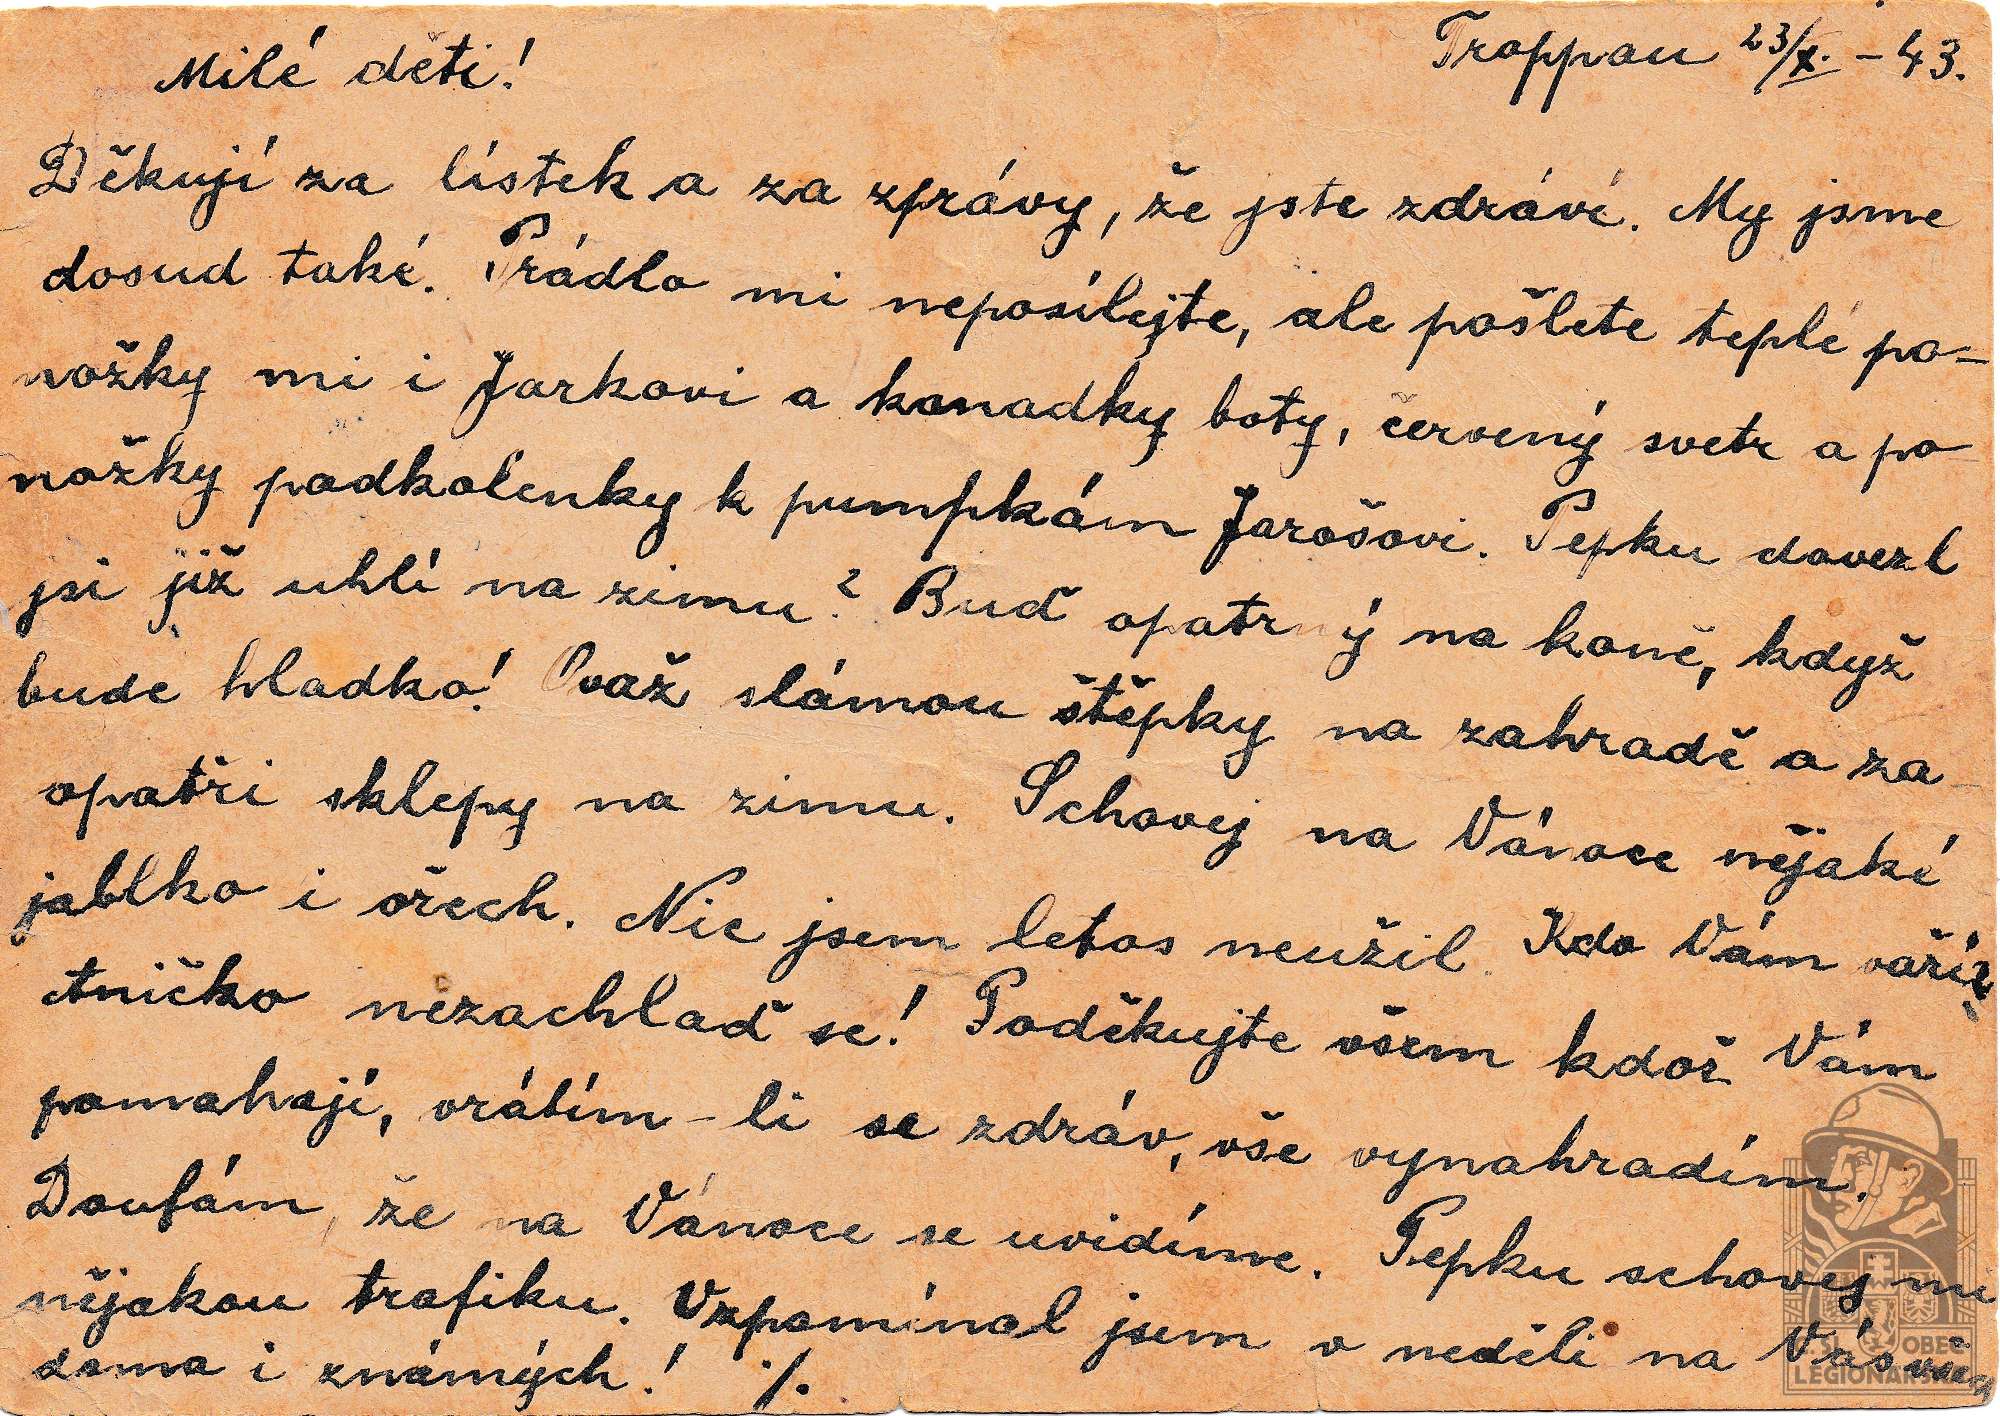 Troppau 23/X. - 43.
Milé děti!
Děkuji za lístek a za zprávy, že jste zdrávi. My jsme
dosud také. Prádlo mi neposílejte, ale pošlete teplé po-
nožky mi i Jarkovi a kanadky boty, červený svetr a po
nožky podkolenky k pumpkám Jarošovi. Pepku dovezl
jsi již uhlí na zimu? Buď opatrný na koně, když
bude hladko! Ovaž slámou štěpky na zahradě a za
opatři sklepy na zimu. Schovej na Vánoce nějaké
jablko i ořech. Nic jsem letos neužil. Kdo Vám vaří?
Aničko nezachlaď se! Poděkujte všem kdož Vám
pomahají, vrátím-li se zdráv, vše vynahradím.
Doufám, že na Vánoce se uvidíme. Pepku schovej mi
nějakou trafiku. Vzpomínal jsem v neděli na Vás
doma i známých! ./.
Č.S. OBEC
LEGIONÁŘSKÁ